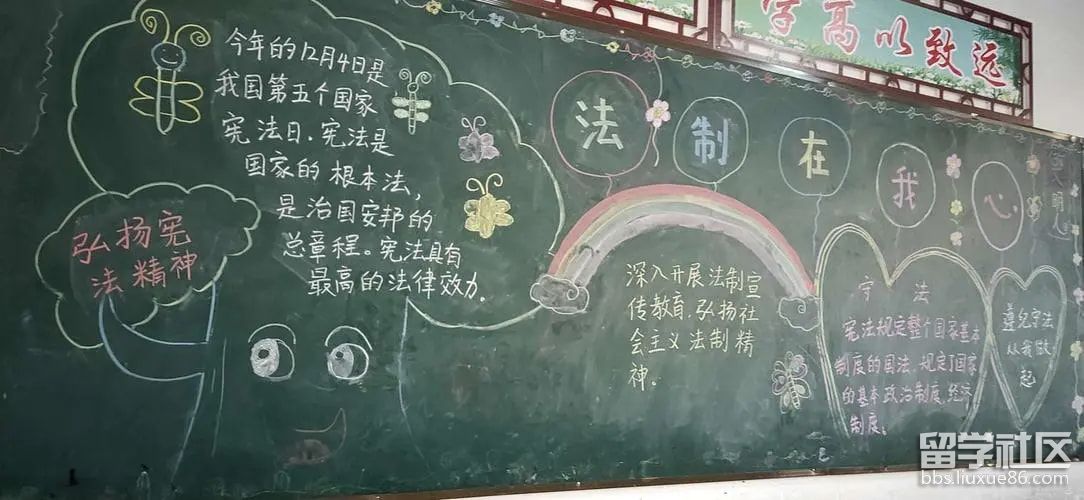 学高以致远
今年的12月4日是
我国第五个国家
宪法日.宪法是
国家的根本法,
是治国安邦的
总章程。宪法具有
最高的法律效力.
弘扬宪
法精神
法制在我心
深入开展法制宣
传教育,弘扬社
会主义法制精
神。
守法
宪法规定整个国家基本
制度的国法,规定了国家
的基本政治制度,经济
制度。
遵纪守法
从我做
起
留学社区
bbs.liuxue86.com